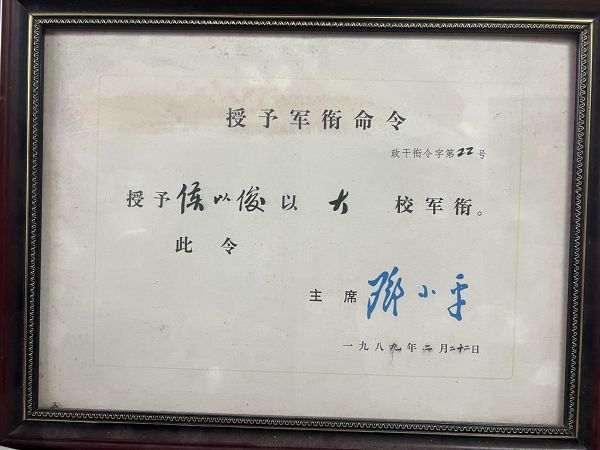 授予军衔命令
政干衔令字第22号
授予侯以俊以 大 校军衔。
此令
主席 邓小平
一九八九年二月二十二日